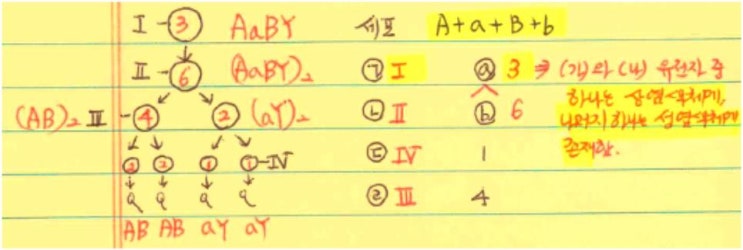 I - ③ AaBY 세포 A+a+B+b
II - ⑥ (AaBY)₂ ㉠ I ⓐ 3 ⇒ (가)와 (나) 유전자 중
(AB)₂ III - ④ ② (aY)₂ ㉡ II ⓑ 6 하나는 상염색체에,
나머지 하나는 성염색체에
② ② ① ① - IV ㉢ IV 1 존재함.
㉣ III 4
AB AB aY aY